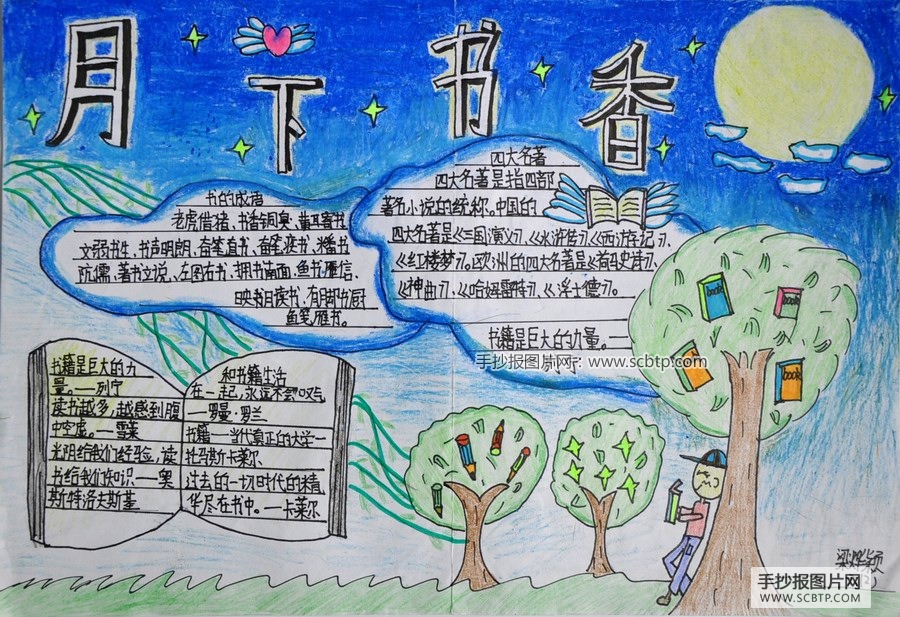 月下书香
书的成语
老虎借猪、书香铜臭、黄耳寄书
文弱书生、书声明朗、奋笔直书、奋笔疾书、
阮儒、著书立说、左图右书、拥书南面、鱼书雁信、
映月读书、有脚书厨
鱼笔雁书。
四大名著
四大名著是指四部
著名小说的统称。中国的
四大名著是《三国演义》、《水浒传》《西游记》、
《红楼梦》。欧洲的四大名著是《荷马史诗》、
《神曲》、《哈姆雷特》、《浮士德》。
书籍是巨大的力量。—
手抄报图片网：www.scbtp.com
书籍是巨大的力
量。——列宁
读书越多,越感到腹
中空虚。——雪莱
光阴给我们经验,读
书给我们知识——奥
斯特洛夫斯基
和书籍生活
在一起,永远不会叹气
——罗曼·罗兰
书籍——当代真正的大学——
托马斯卡莱尔
过去的一切时代的精
华尽在书中。——卡莱尔
book
book
book
book
手抄报图片网
WWW.SCBTP.COM